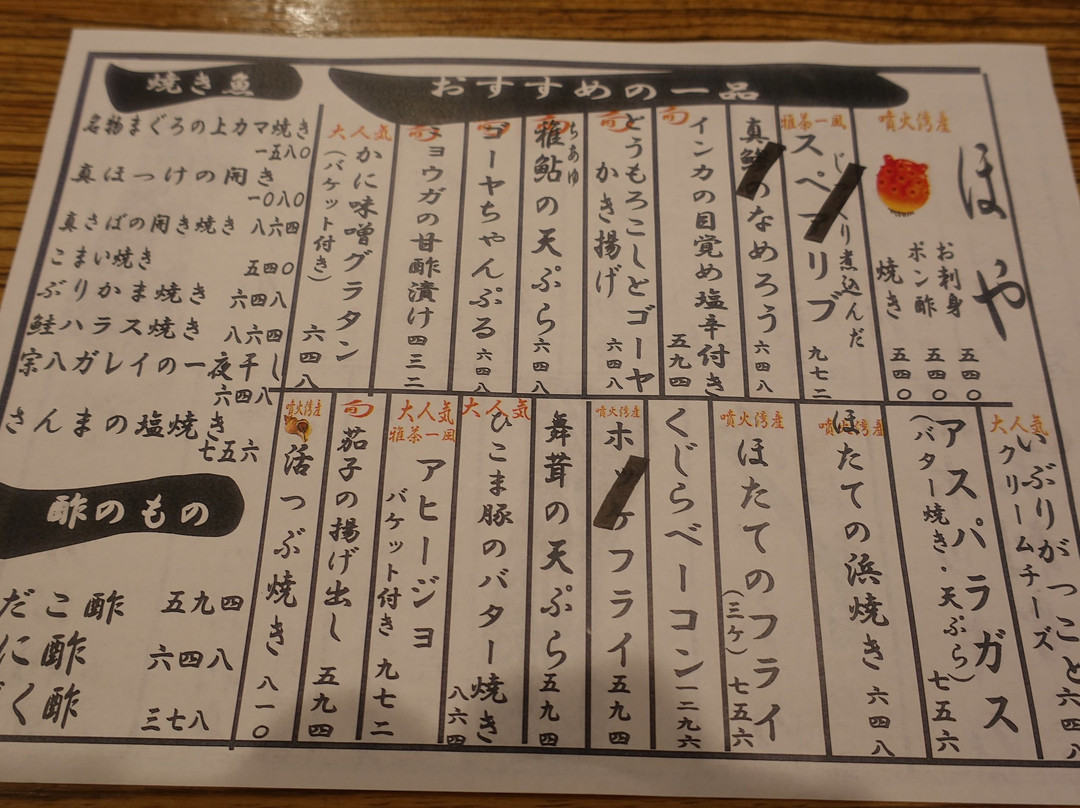 おすすめの一品
噴火湾産
ほや
お刺身 五四〇
ポン酢 五四〇
焼き 五四〇
雅茶一風
じっくり煮込んだ
スペアリブ
九七二
真鯵のなめろう 六四八
インカの目覚め塩辛付き
五九四
とうもろこしとゴーヤ
かき揚げ
六四八
稚鮎の天ぷら 六四八
ちあゆ
ゴーヤちゃんぷる 六四八
ョウガの甘酢漬け 四三二
大人気
かに味噌グラタン
(バケット付き)
六四八
大人気
いぶりがっこと
クリームチーズ
六四八
アスパラガス
(バター焼き・天ぷら)
七五六
噴火湾産
ほたての浜焼き 六四八
噴火湾産
ほたてのフライ
(三ケ) 七五六
くじらベーコン 一二九六
噴火湾産
ホッケフライ 五九四
舞茸の天ぷら 五九四
大人気
ひこま豚のバター焼き
八六四
大人気
雅茶一風
アヒージョ
バケット付き 九七二
茄子の揚げ出し 五九四
噴火湾産
活つぶ焼き 八一〇
焼き魚
名物まぐろの上カマ焼き
一五八〇
真ほっけの開き
一〇八〇
真さばの開き焼き 八六四
こまい焼き 五四〇
ぶりかま焼き 六四八
鮭ハラス焼き 八六四
宗八ガレイの一夜干し
六四八
さんまの塩焼き
七五六
酢のもの
だこ酢 五九四
に酢 六四八
ずく酢 三七八